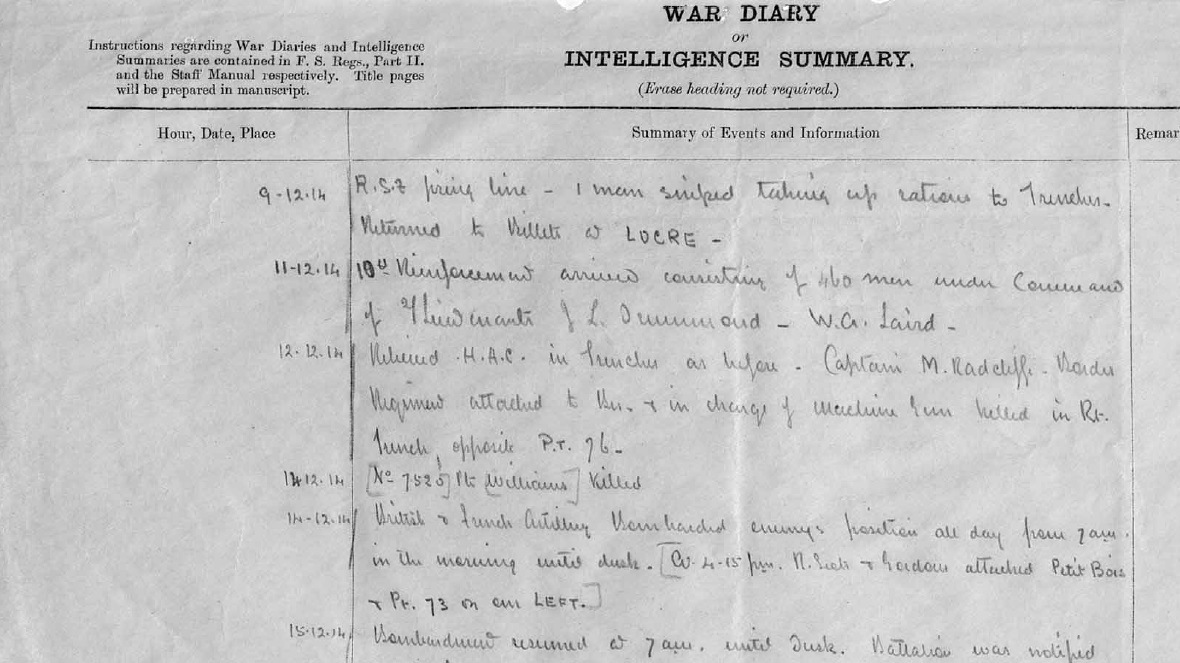 WAR DIARY
or
INTELLIGENCE SUMMARY.
(Erase heading not required.)
Instructions regarding War Diaries and Intelligence
Summaries are contained in F. S. Regs., Part II.
and the Staff Manual respectively. Title pages
will be prepared in manuscript.
Hour, Date, Place
Summary of Events and Information
Remar
9-12.14 firing line - 1 man sniped taking up rations to Trenches.
Returned to Billets at LOCRE -
11-12.14 10th Reinforcement arrived consisting of 460 men under Command
of Lieutenants J L. Drummond - W.A. Laird -
12.12.14 Relieved H.A.C. in Trenches as before. Captain M. Radcliffe. Border
Regiment attached to Bn. & in charge of Machine Gun killed in Rt.
Trench, opposite P.T. 76.
12.14 [No 7525] Pte [Williams] Killed
14-12.14 British & French Artillery Bombarded enemy's position all day from 7am.
in the morning until dusk. [At 4-15 pm. R. Scots & Gordons attached Petit Bois
& Pt. 73 on our LEFT.]
15.12.14 Bombardment resumed at 7am. until Dusk. Battalion was notified